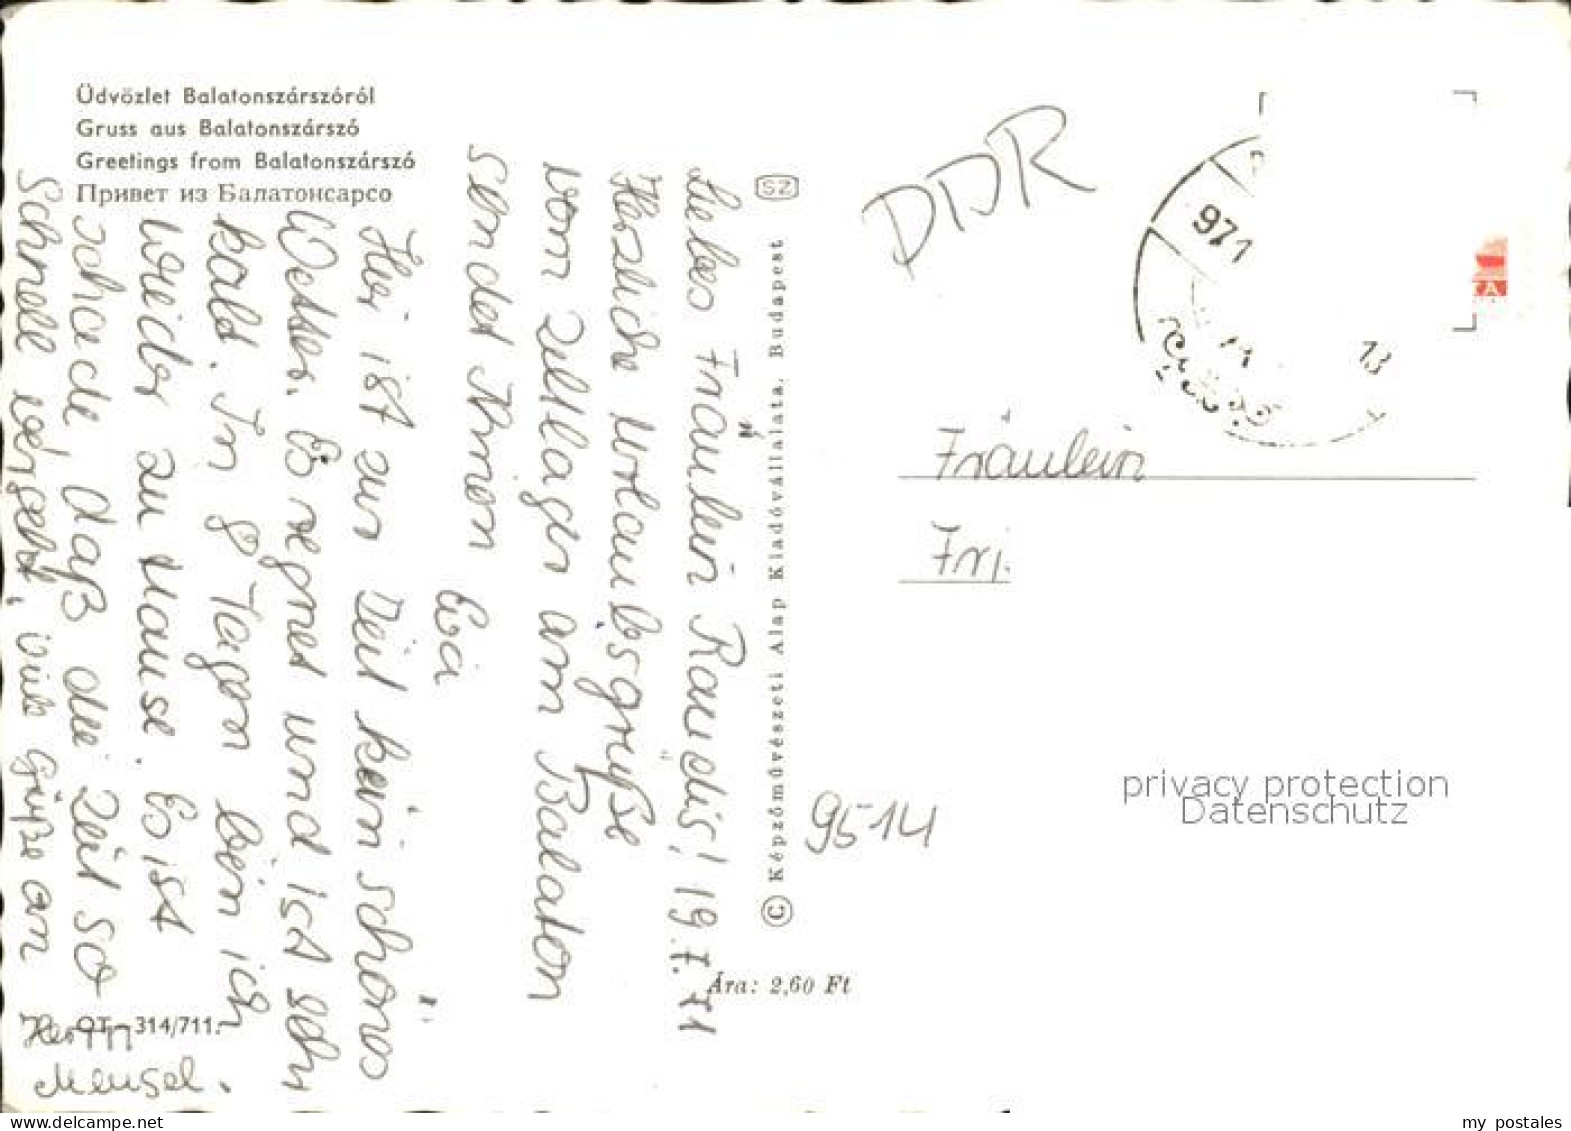 Üdvözlet Balatonszárszóról
Gruss aus Balatonszárszó
Greetings from Balatonszárszó
Привет из Балатонсарсо
SZ
Liebes Fräulein Raudis! 19.7.71
Herzliche Urlaubsgrüße
vom Zeltlager am Balaton
sendet Ihnen
Eva
Hier ist zur Zeit kein schönes
Wetter. Es regnet und ist sehr
kalt. In 8 Tagen bin ich
wieder zu Hause. Es ist
schade, daß die Zeit so
schnell vergeht, viele Grüße an
Herrn
Meusel.
© Képzőművészeti Alap Kiadóvállalata, Budapest
Ára: 2,60 Ft
314/711.
DDR
971
13
TA
Fräulein
Frj.
9514
privacy protection
Datenschutz
www.delcampe.net
my_postales